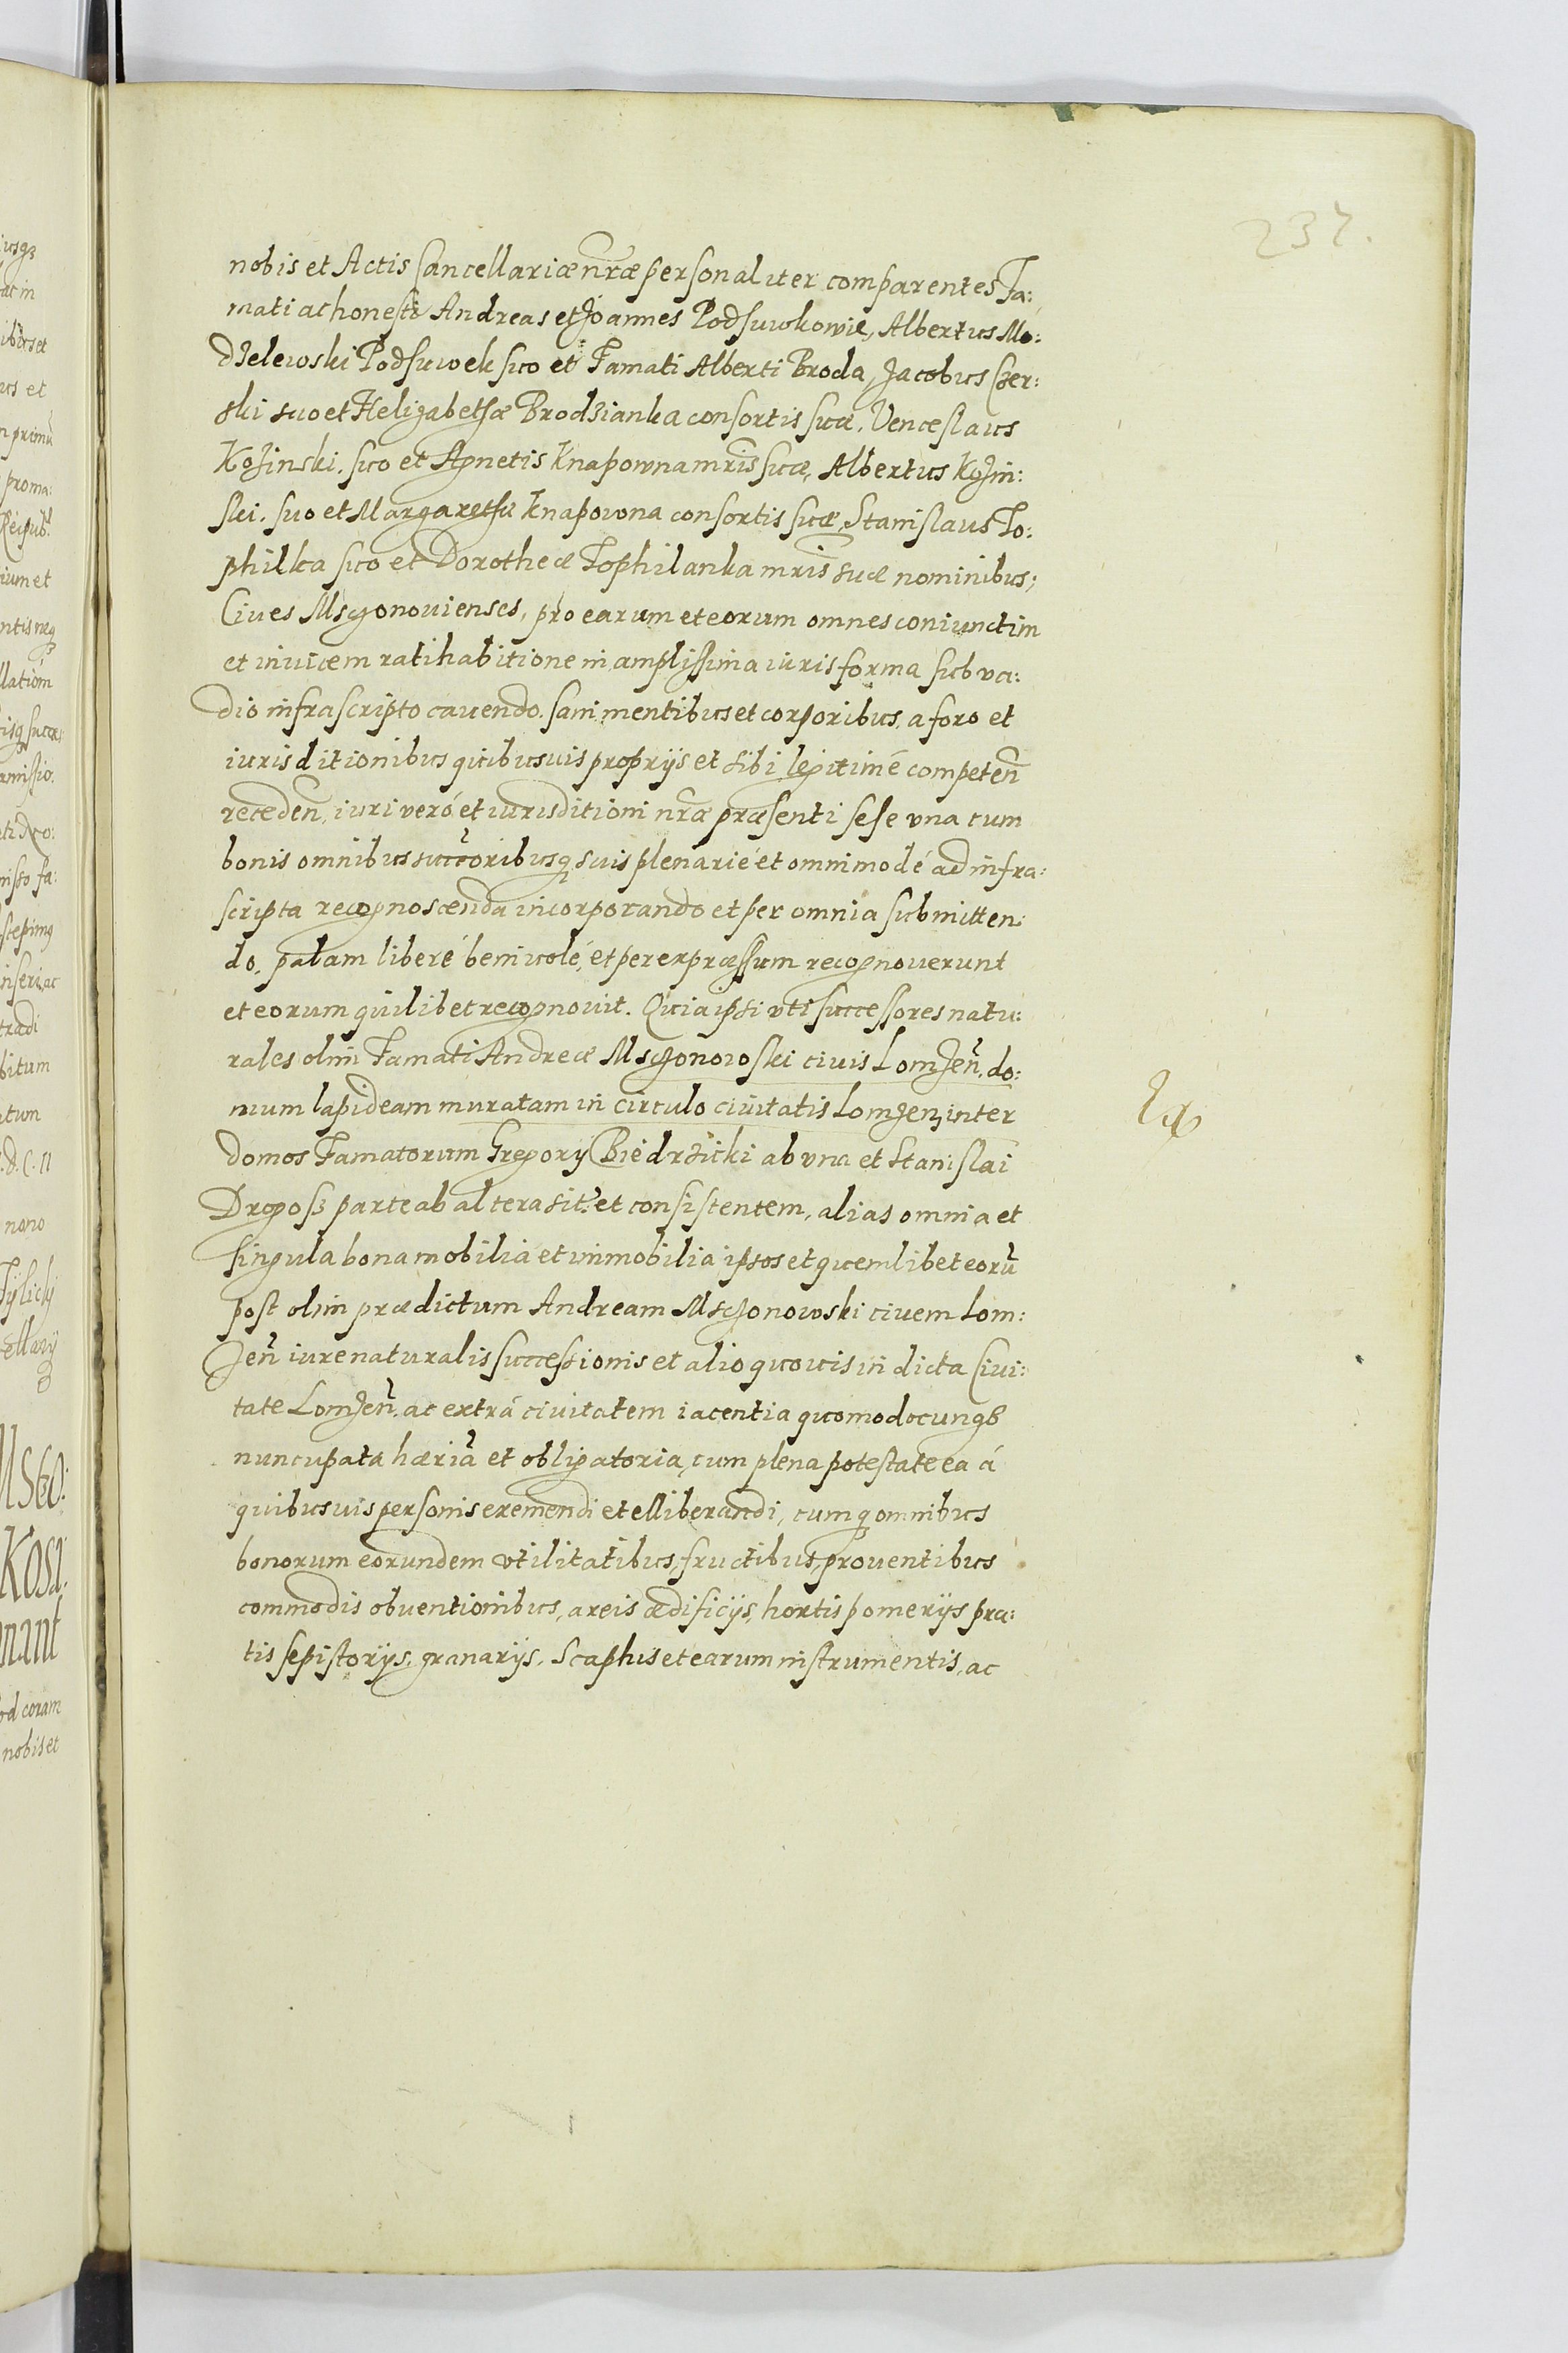 237.
nobis et Actis Cancellariæ nr̃æ personaliter comparentes Fa:
mati ac honesti Andreas et Joannes Podsuwkowie, Albertus Mo:
dzelewski Podsuwek suo et Famati Alberti Broda, Jacobus Czer:
ski suo et Helizabethæ Brodzianka consortis suæ, Venceslaus
Kozinski, suo et Agnetis Knapowna mr̃is suæ, Albertus Kozin:
ski, suo et Margarethæ Knapowna consortis suæ, Stanislaus To:
philka suo et Dorotheæ Tophilanka mr̃is suæ nominibus;
Ciues Msczonouienses, pro earum et eorum omnes coniunctim
et inuicem ratihabitione in amplissima iuris forma sub va:
dio infrascripto cauendo. sani mentibus et corporibus, a foro et
iurisditionibus quibusuis proprijs et sibi legitimè competeñ
recedeñ, iuri veró et iurisditioni nr̃æ præsenti sese vna cum
bonis omnibus succ̃oribusq suis plenarié et omnimodé ad infra:
scripta recognoscenda incorporando et per omnia submitten:
do, palam liberé beniuolé, et per expræssum recognouerunt
et eorum quilibet recognouit. Quia ipsi vti successores natu:
rales olim Famati Andreæ Msczonowski ciuis Lomzeñ, do:
mum lapideam muratam in circulo ciuitatis Lomzeñ inter
domos Famatorum Gregorÿ Biedrzicki ab vna et Stanislai
Drogosz parte ab altera sit. et consistentem, alias omnia et
singula bona mobilia et immobilia ipsos et quemlibet eorũ
post olim prædictum Andream Msczonowski ciuem Lom:
zeñ iure naturalis successionis et alio quouis in dicta Ciui:
tate Lomzeñ ac extrá ciuitatem iacentia quomodocunqȝ
nuncupata hæriã et obligatoria, cum plena potestate ea á
quibusuis personis exemendi et elliberandi, cumq omnibus
bonorum eorundem vtilitatibus, fructibus, prouentibus
commodis obuentionibus, areis ædificijs, hortis pomerijs pra:
tis sepistorijs, granarijs, Scaphis et earum instrumentis, ac